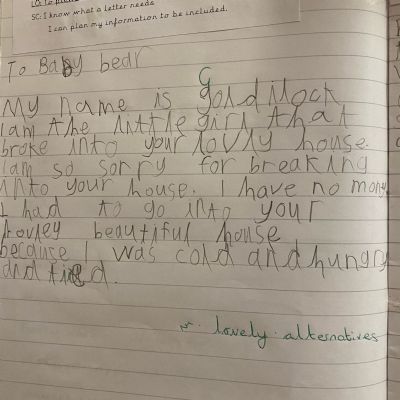 SC: I know what a letter needs
I can plan my information to be included.
To Baby bedr
G
My name is goldilock
I am the little girl that
broke into your lovly house.
I am so sorry for breaking
into your house. I have no mony
I had to go into your
lovley beautiful house
because I was cold and hungry
and tired.
lovely alternatives